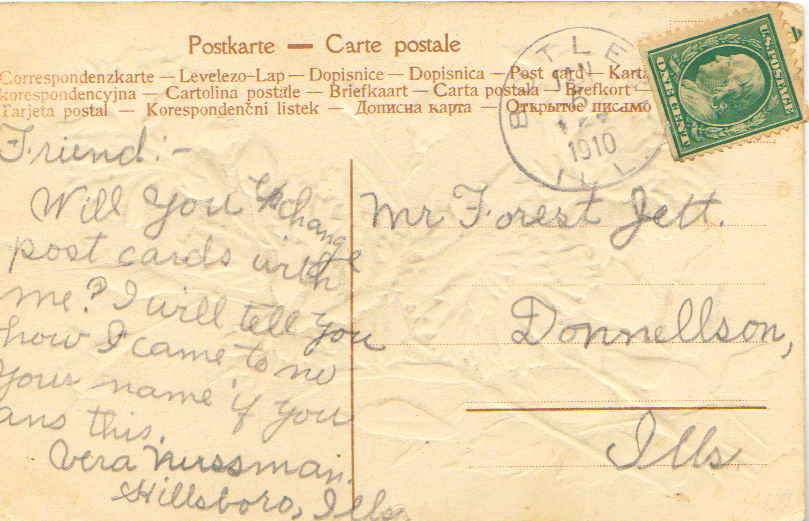 Postkarte — Carte postale
Correspondenzkarte — Levelezo-Lap — Dopisnice — Dopisnica — Post card — Karta
korespondencyjna — Cartolina postale — Briefkaart — Carta postala — Brefkort
Tarjeta postal — Korespondenční listek — Дописна карта — Открытое письмо
U.S. POSTAGE
ONE CENT
JAN
1910
ILL
Friend:-
Will you exchange
post cards with
me? I will tell you
how I came to no
your name if you
ans this.
Vera Nussman.
Hillsboro, Ills.
Mr Forest Jett.
Donnellson,
Ills